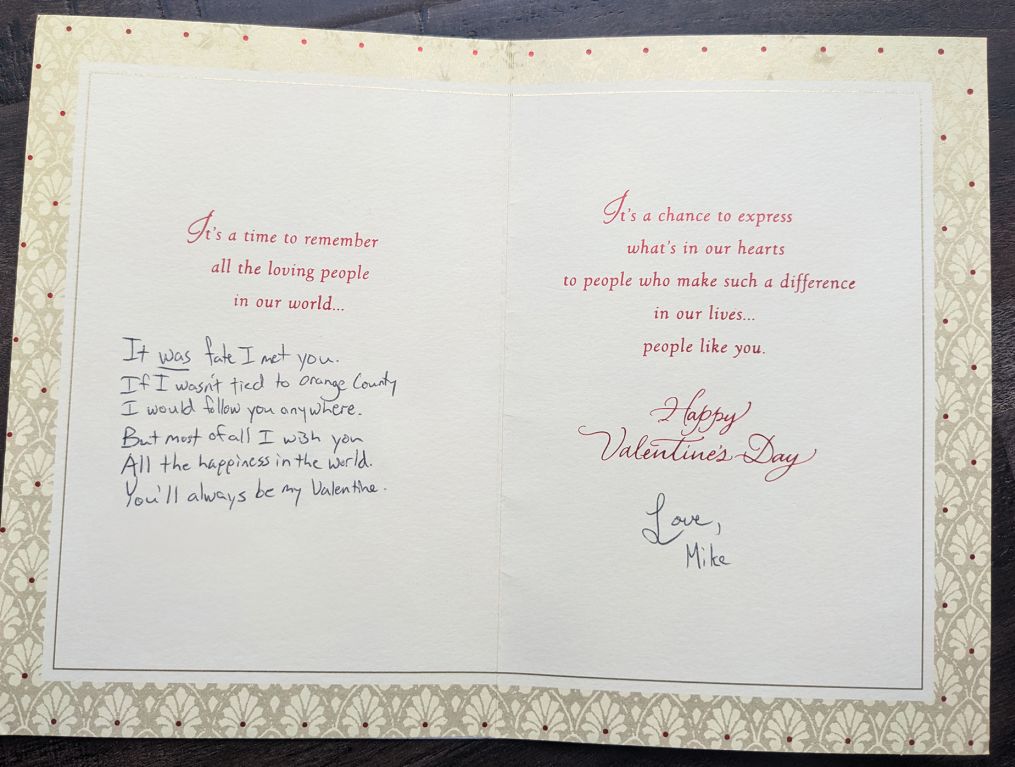 It's a time to remember
all the loving people
in our world...
It was fate I met you.
If I wasn't tied to Orange County
I would follow you anywhere.
But most of all I wish you
All the happiness in the world.
You'll always be my Valentine.
It's a chance to express
what's in our hearts
to people who make such a difference
in our lives...
people like you.
Happy
Valentine's Day
Love,
Mike